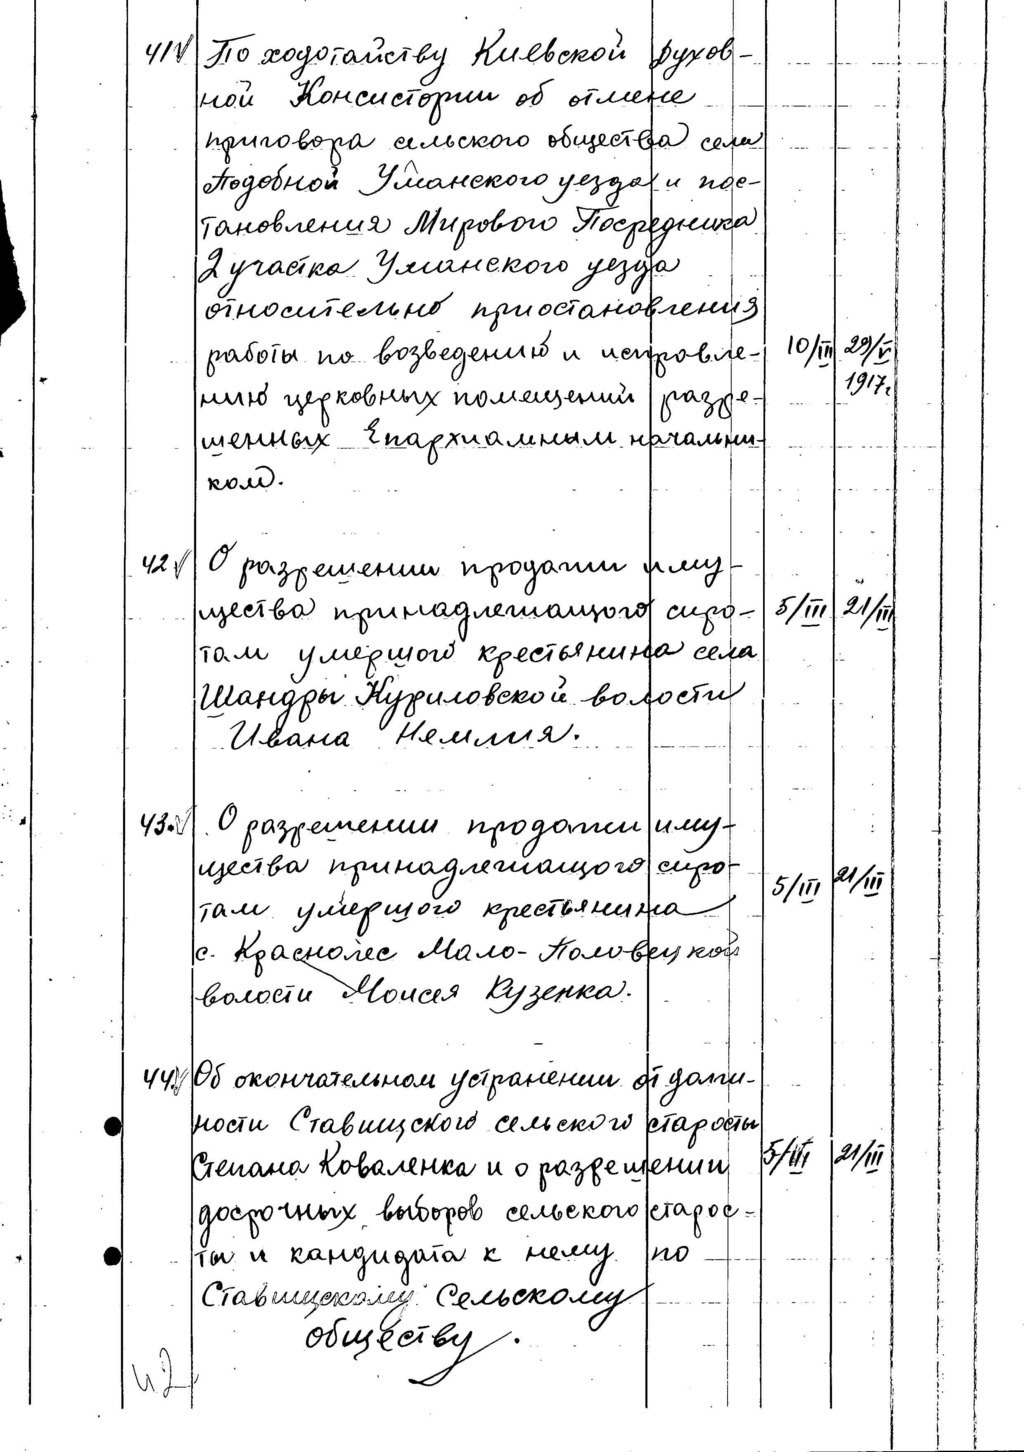 41 По ходотайству Киевской Духов-
ной Консистории об отмене
приговора сельского общества села
Подобной Уманского уезда и пос-
тановления Мирового Посредника
2 участка Уманского уезда
относительно приостановления
работы по возведению и исправле- 10/III 29/V
нию церковных помещений разре- 1917г
шенных Епархиальным начальни-
ком.
42. О разрешении продажи иму-
щества принадлежащого сиро- 5/III 21/III
там умершого крестьянина села
Шандры Куриловской волости
Ивана Немлия.
43. О разрешении продажи иму-
щества принадлежащого сиро- 5/III 21/III
там умершого крестьянина
с. Краснолес Мало-Половецкой
волости Моисея Кузенка.
44. Об окончательном устранении от долж-
ности Ставищского сельского старосты
Степана Коваленка и о разрешении 5/III 21/III
досрочных выборов сельского старос-
ты и кандидата к нему по
Ставищскому Сельскому
обществу.
42